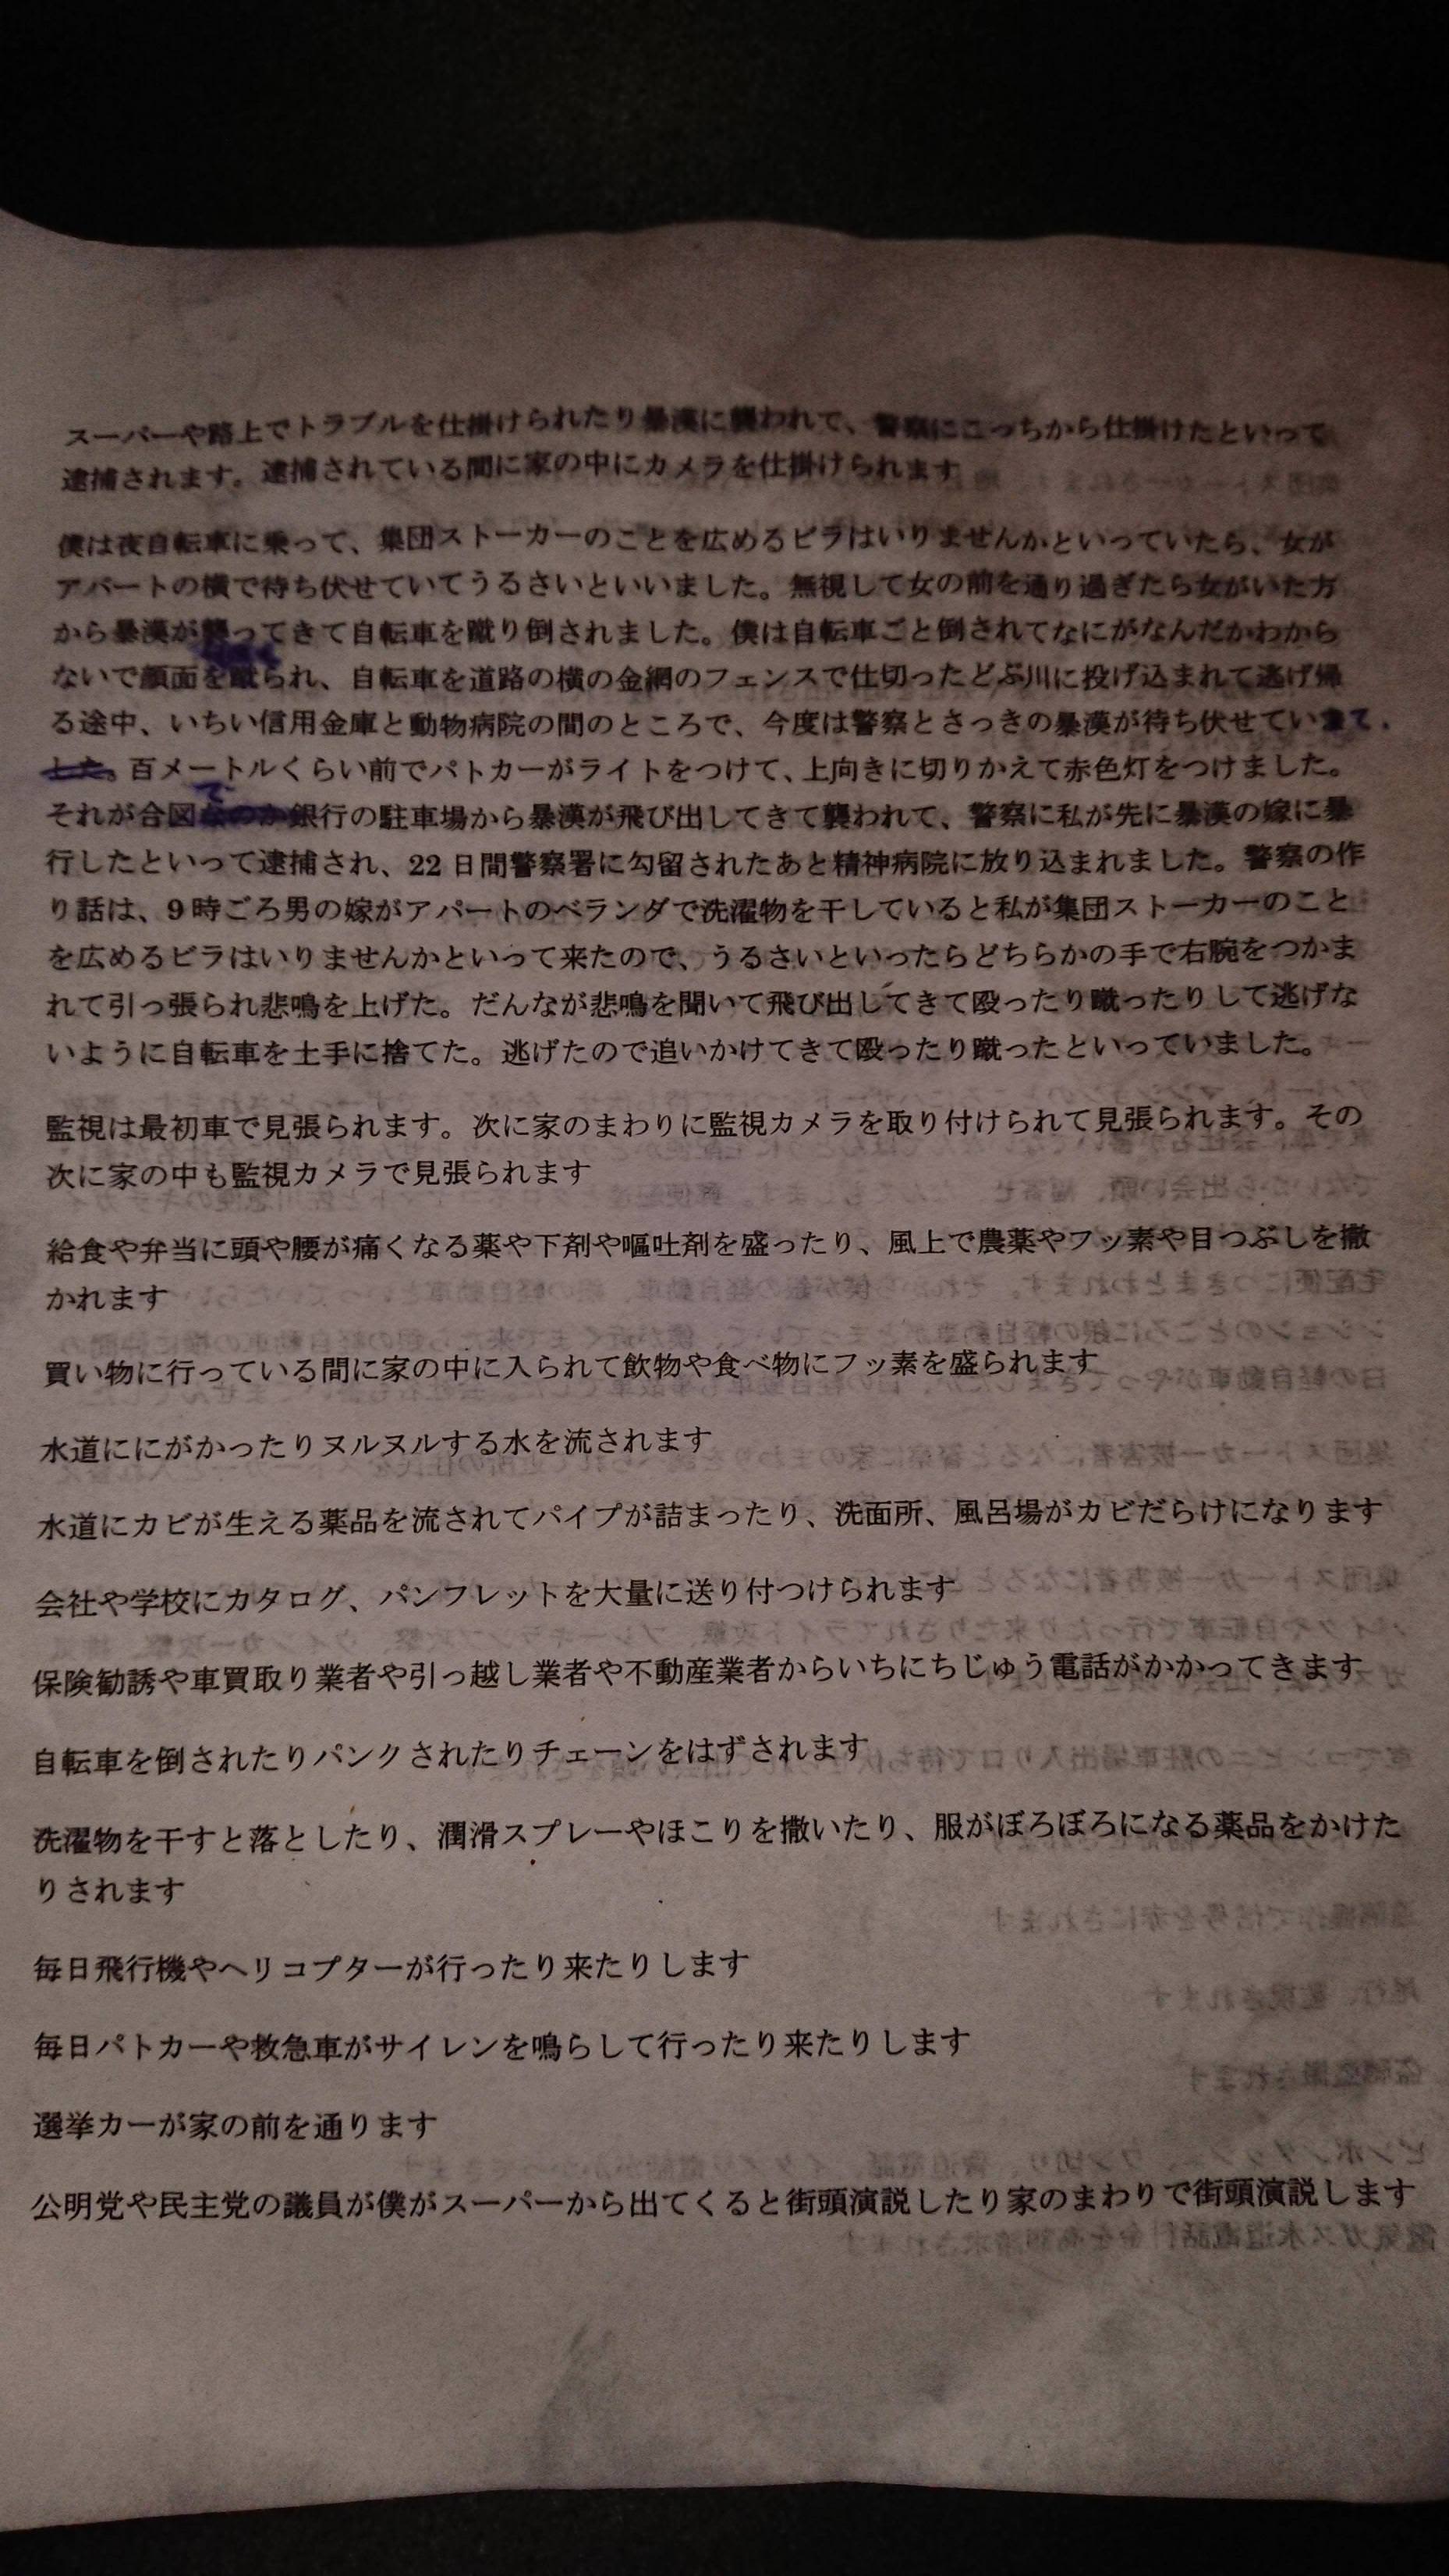 スーパーや路上でトラブルを仕掛けられたり暴漢に襲われて、警察にこっちから仕掛けたといって
逮捕されます。逮捕されている間に家の中にカメラを仕掛けられます
僕は夜自転車に乗って、集団ストーカーのことを広めるビラはいりませんかといっていたら、女が
アパートの横で待ち伏せていてうるさいといいました。無視して女の前を通り過ぎたら女がいた方
から暴漢が襲ってきて自転車を蹴り倒されました。僕は自転車ごと倒されてなにがなんだかわから
ないで顔面を蹴られ、自転車を道路の横の金網のフェンスで仕切ったどぶ川に投げ込まれて逃げ帰
る途中、いちい信用金庫と動物病院の間のところで、今度は警察とさっきの暴漢が待ち伏せていて、
百メートルくらい前でパトカーがライトをつけて、上向きに切りかえて赤色灯をつけました。
それが合図で銀行の駐車場から暴漢が飛び出してきて襲われて、警察に私が先に暴漢の嫁に暴
行したといって逮捕され、22日間警察署に勾留されたあと精神病院に放り込まれました。警察の作
り話は、9時ごろ男の嫁がアパートのベランダで洗濯物を干していると私が集団ストーカーのこと
を広めるビラはいりませんかといって来たので、うるさいといったらどちらかの手で右腕をつかま
れて引っ張られ悲鳴を上げた。だんなが悲鳴を聞いて飛び出してきて殴ったり蹴ったりして逃げな
いように自転車を土手に捨てた。逃げたので追いかけてきて殴ったり蹴ったといっていました。
監視は最初車で見張られます。次に家のまわりに監視カメラを取り付けられて見張られます。その
次に家の中も監視カメラで見張られます
給食や弁当に頭や腰が痛くなる薬や下剤や嘔吐剤を盛ったり、風上で農薬やフッ素や目つぶしを撒
かれます
買い物に行っている間に家の中に入られて飲物や食べ物にフッ素を盛られます
水道ににがかったりヌルヌルする水を流されます
水道にカビが生える薬品を流されてパイプが詰まったり、洗面所、風呂場がカビだらけになります
会社や学校にカタログ、パンフレットを大量に送り付つけられます
保険勧誘や車買取り業者や引っ越し業者や不動産業者からいちにちじゅう電話がかかってきます
自転車を倒されたりパンクされたりチェーンをはずされます
洗濯物を干すと落としたり、潤滑スプレーやほこりを撒いたり、服がぼろぼろになる薬品をかけた
りされます
毎日飛行機やヘリコプターが行ったり来たりします
毎日パトカーや救急車がサイレンを鳴らして行ったり来たりします
選挙カーが家の前を通ります
公明党や民主党の議員が僕がスーパーから出てくると街頭演説したり家のまわりで街頭演説します